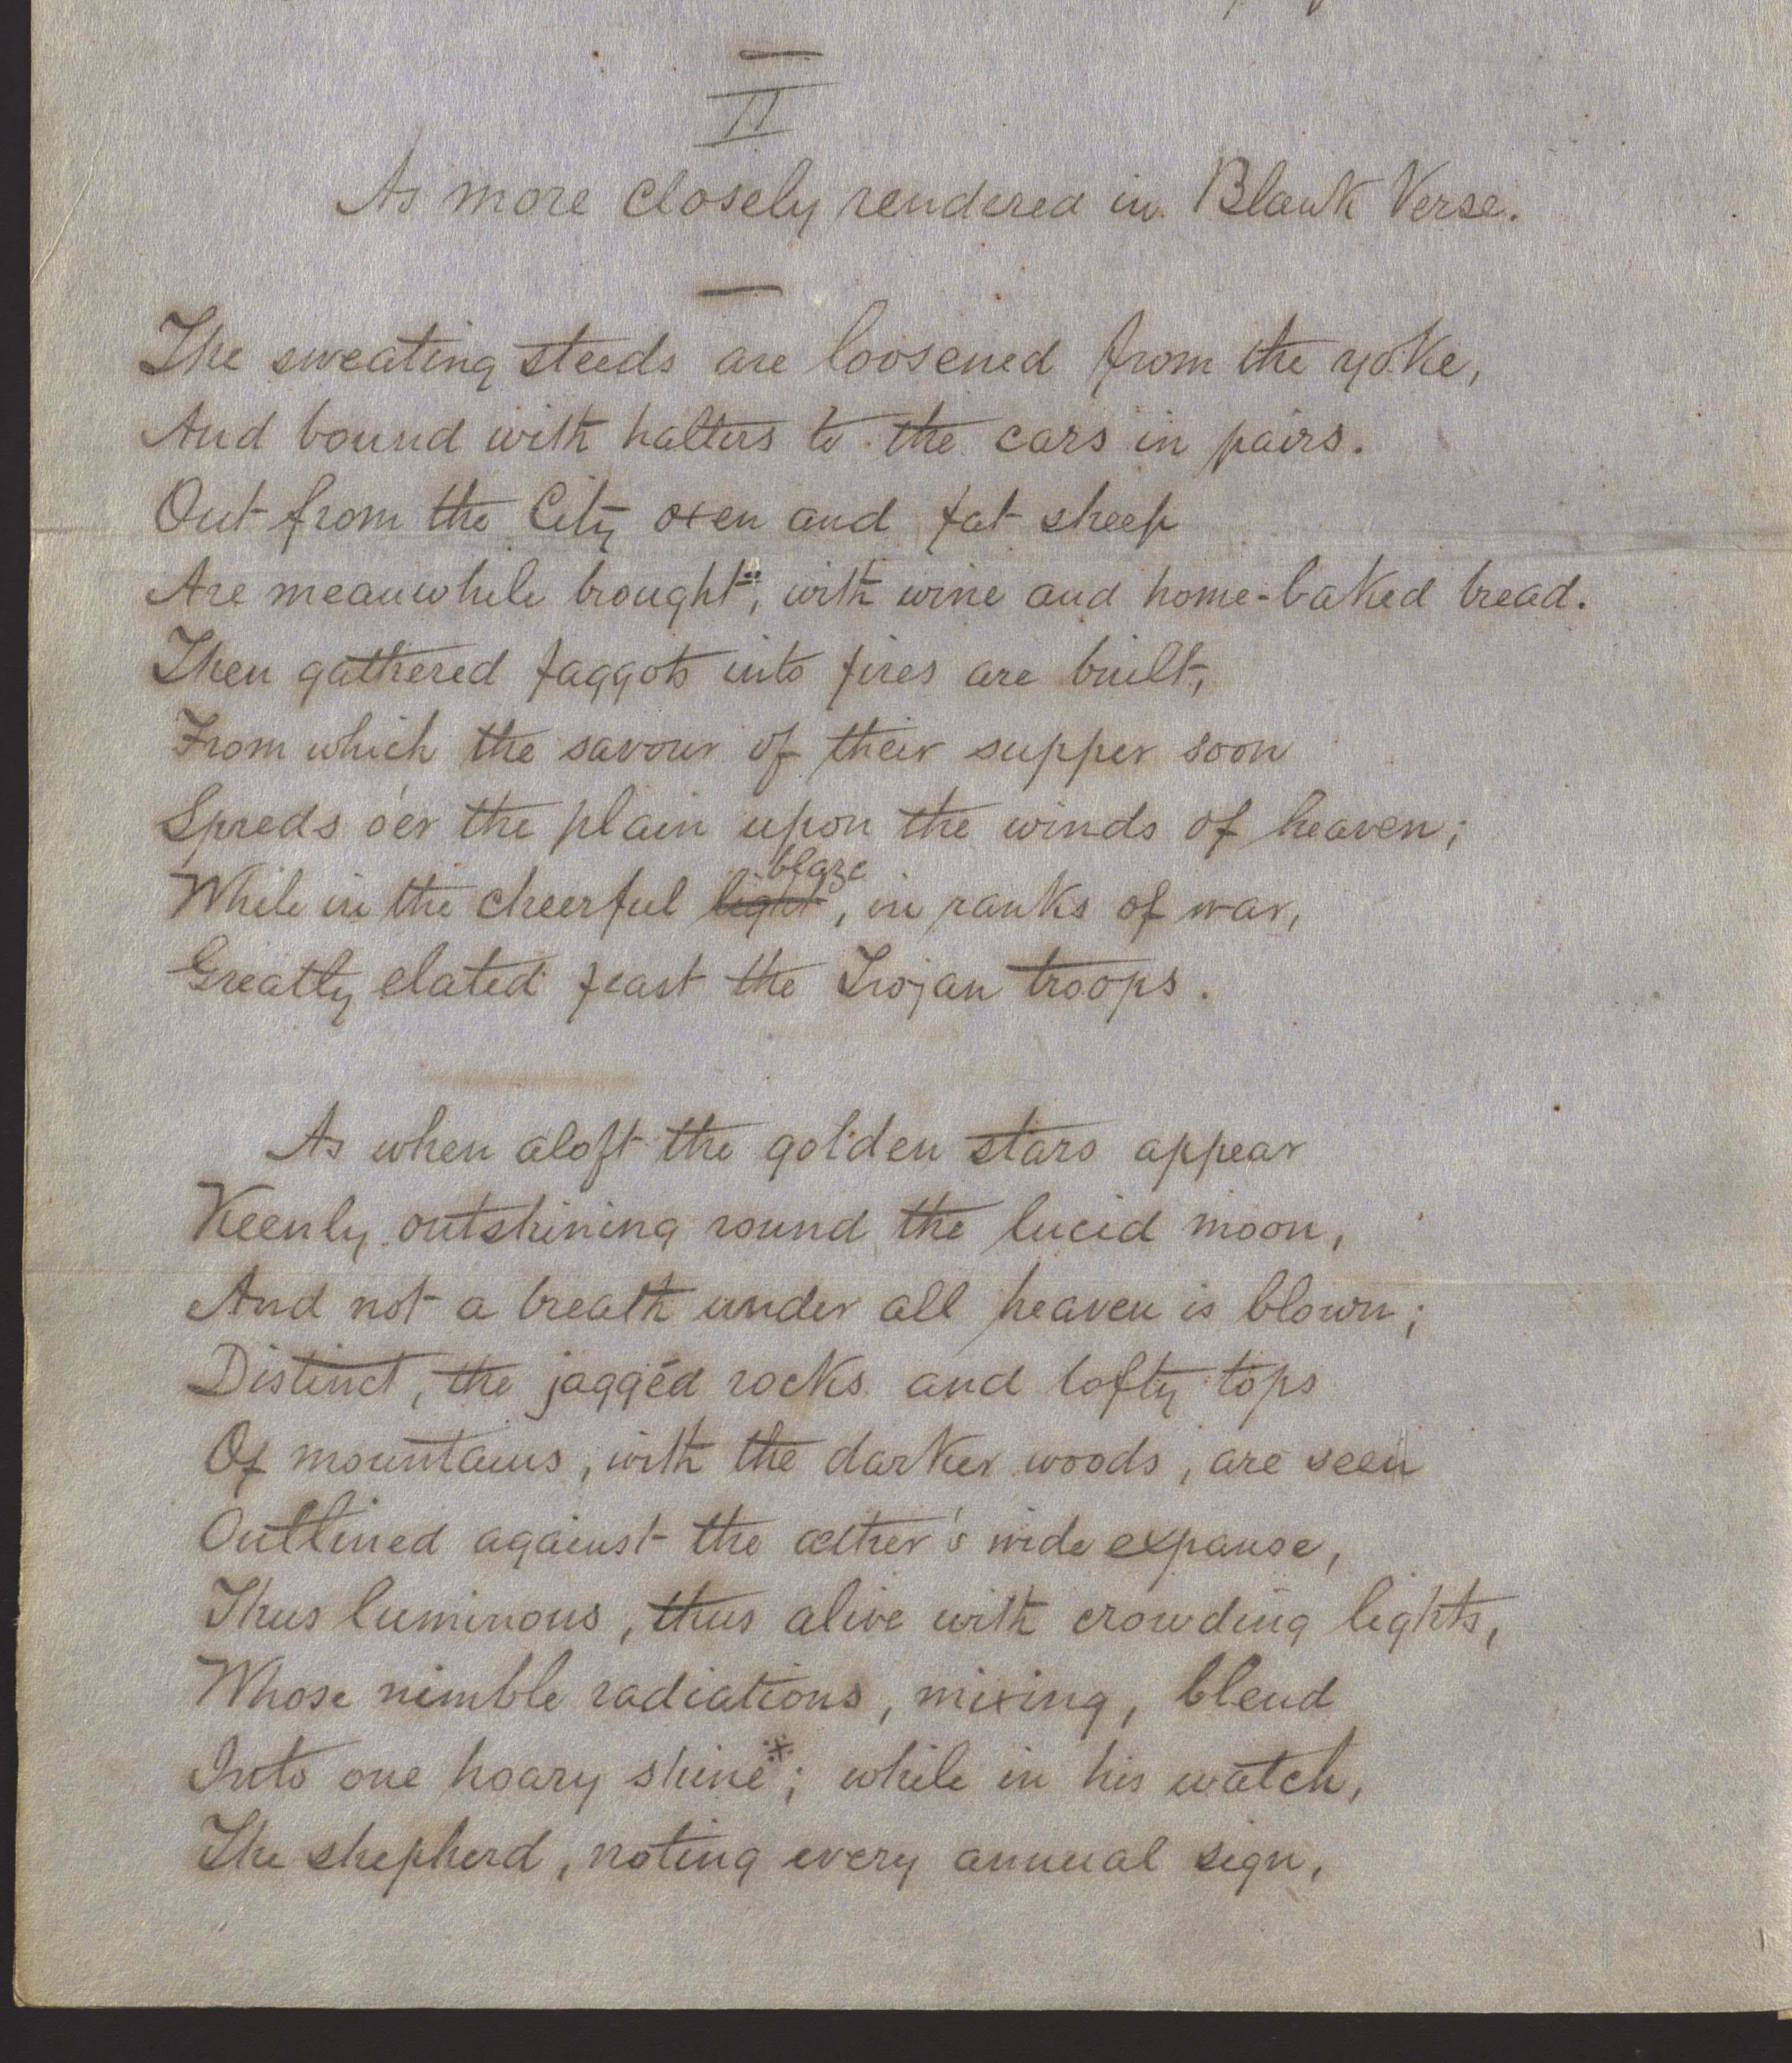 II
As more closely rendered in Blank Verse.
The sweating steeds are loosened from the yoke,
And bound with halters to the cars in pairs.
Out from the City oxen and fat sheep
Are meanwhile brought, with wine and home-baked bread.
Then gathered faggots into fires are built,
From which the savour of their supper soon
Spreds o'er the plain upon the winds of heaven;
blaze
While in the cheerful light, in ranks of war,
Greatly elated feast the Trojan troops.
As when aloft the golden stars appear
Keenly outshining round the lucid moon,
And not a breath under all heaven is blown;
Distinct, the jaggéd rocks and lofty tops
Of mountains, with the darker woods, are seen
Outlined against the æther's wide expanse,
Thus luminous, thus alive with crowding lights,
Whose nimble radiations, mixing, blend
Into one hoary shine※; while in his watch,
The shepherd, noting every annual sign,